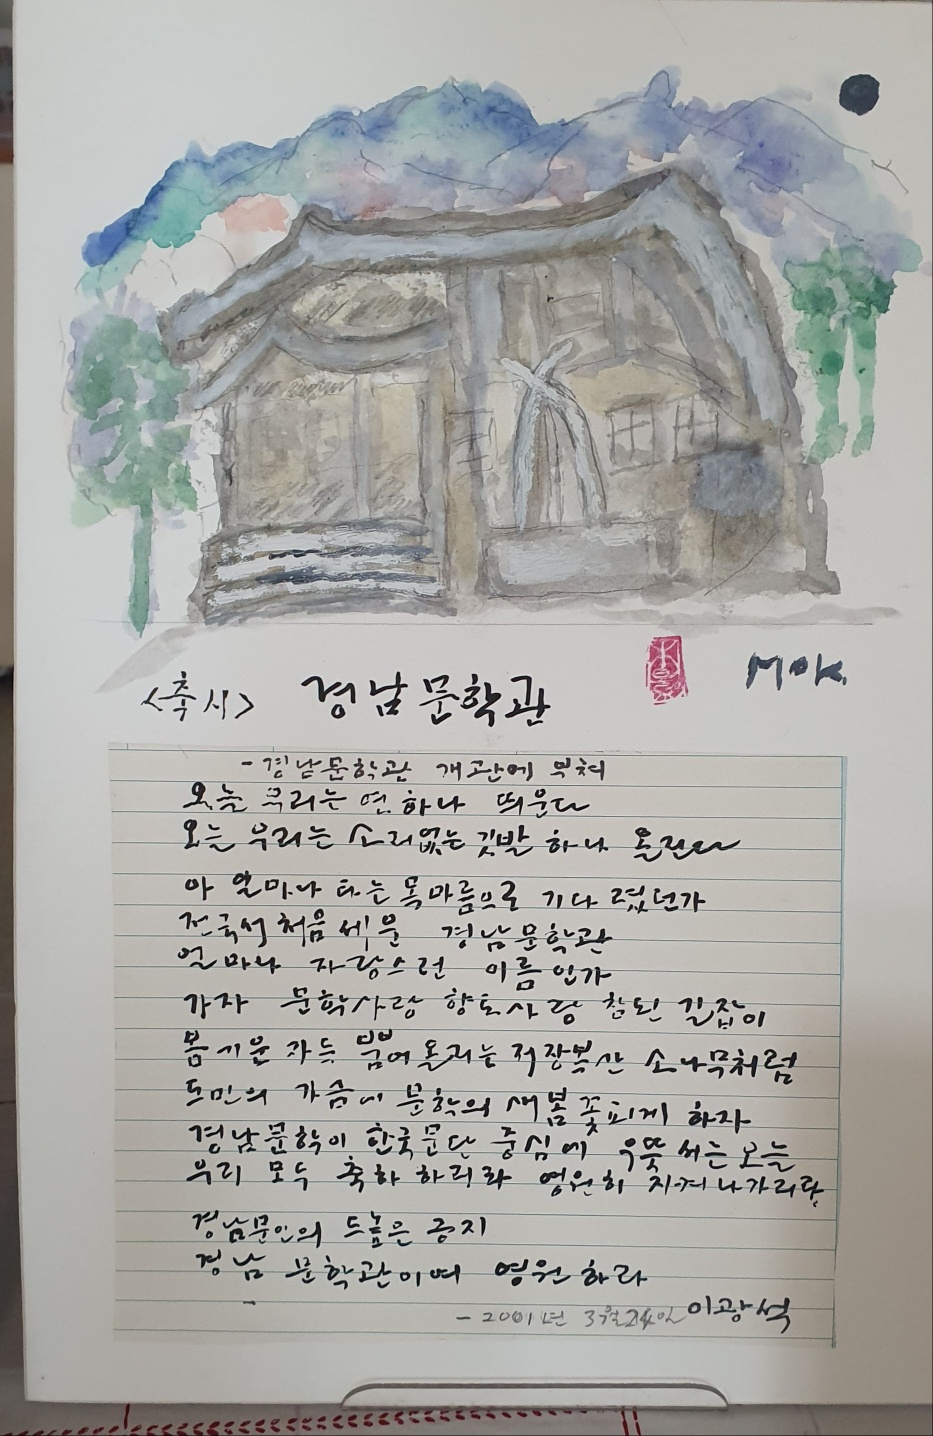 Mok.
<축시> 경남문학관
- 경남문학관 개관에 부쳐
오늘 우리는 연 하나 띄운다
오늘 우리는 소리없는 깃발 하나 올린다
아 얼마나 타는 목마름으로 기다렸던가
전국서 처음 세운 경남문학관
얼마나 자랑스런 이름인가
가자 문학사랑 향토사랑 참된 길잡이
봄기운 가득 뿜어올리는 저 장복산 소나무처럼
도민의 가슴에 문학의 새봄 꽃피게 하자
경남문학이 한국문단 중심에 우뚝 서는 오늘
우리 모두 축하하리라 영원히 지켜나가리라
경남문인의 드높은 긍지
경남문학관이여 영원하라
- 2001년 3월 24일 이광석